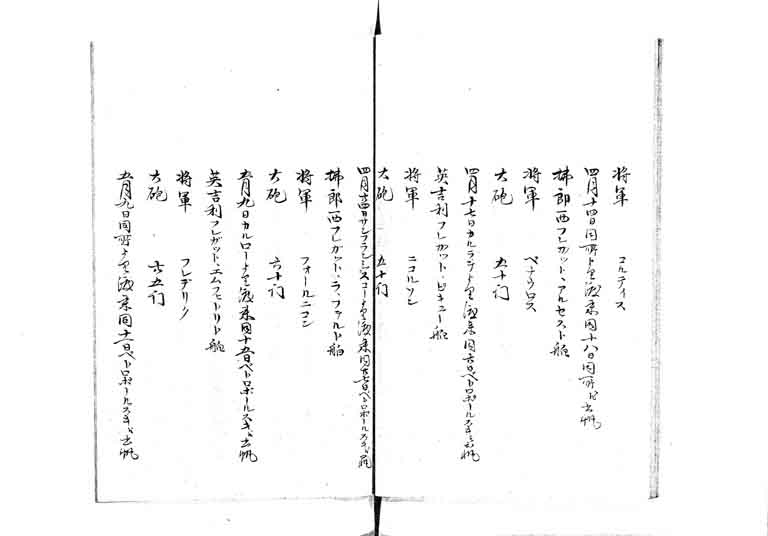 将軍 コルティス
四月十四日同所ゟ渡来同十八日同所に出帆
拂郎西フレガット、アルセスト船
将軍 ペナウロス
大砲 五十門
四月十七日カルラヲゟ渡来同廿日ペトロポールスキに出帆
英吉利フレガット、ピキュー船
将軍 ニコルソン
大砲 五十門
四月 日サンフランシスコーゟ渡来同 日ペトロポールスキに出帆
拂郎西フレガット、ラ、フォルト船
将軍 フォールニコン
大砲 六十門
五月九日カルローゟ渡来同十五日ペトロポールスキに出帆
英吉利フレガット、エムフモトリト船
将軍 フレデリク
大砲 六五門
五月九日同所ゟ渡来同十一日ペトロポールスキに出帆